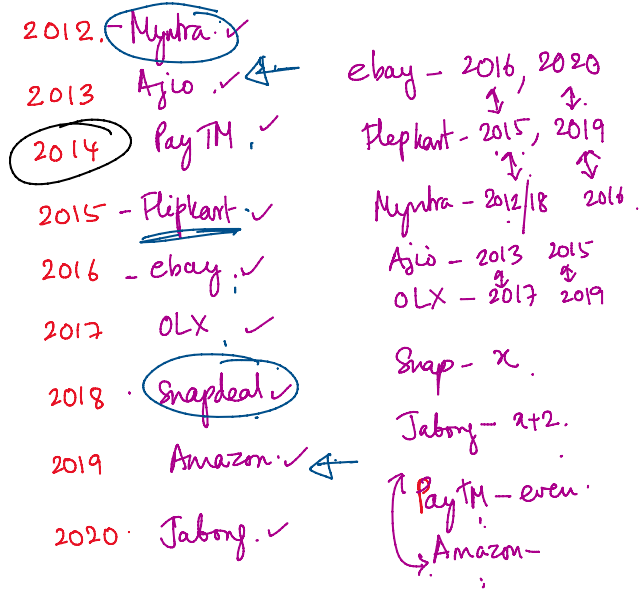 2012. - Myntra. ✓
2013 Ajio. ✓
2014 PayTM ✓
2015 - Flipkart ✓
2016 - ebay. ✓
2017 OLX ✓
2018 Snapdeal ✓
2019 Amazon. ✓
2020 Jabong. ✓
ebay - 2016, 2020
Flepkart - 2015, 2019
Myntra - 2012/18 2016.
Ajio - 2013 2015
OLX - 2017 2019
Snap - x.
Jabong - x+2.
PayTM - even.
Amazon -